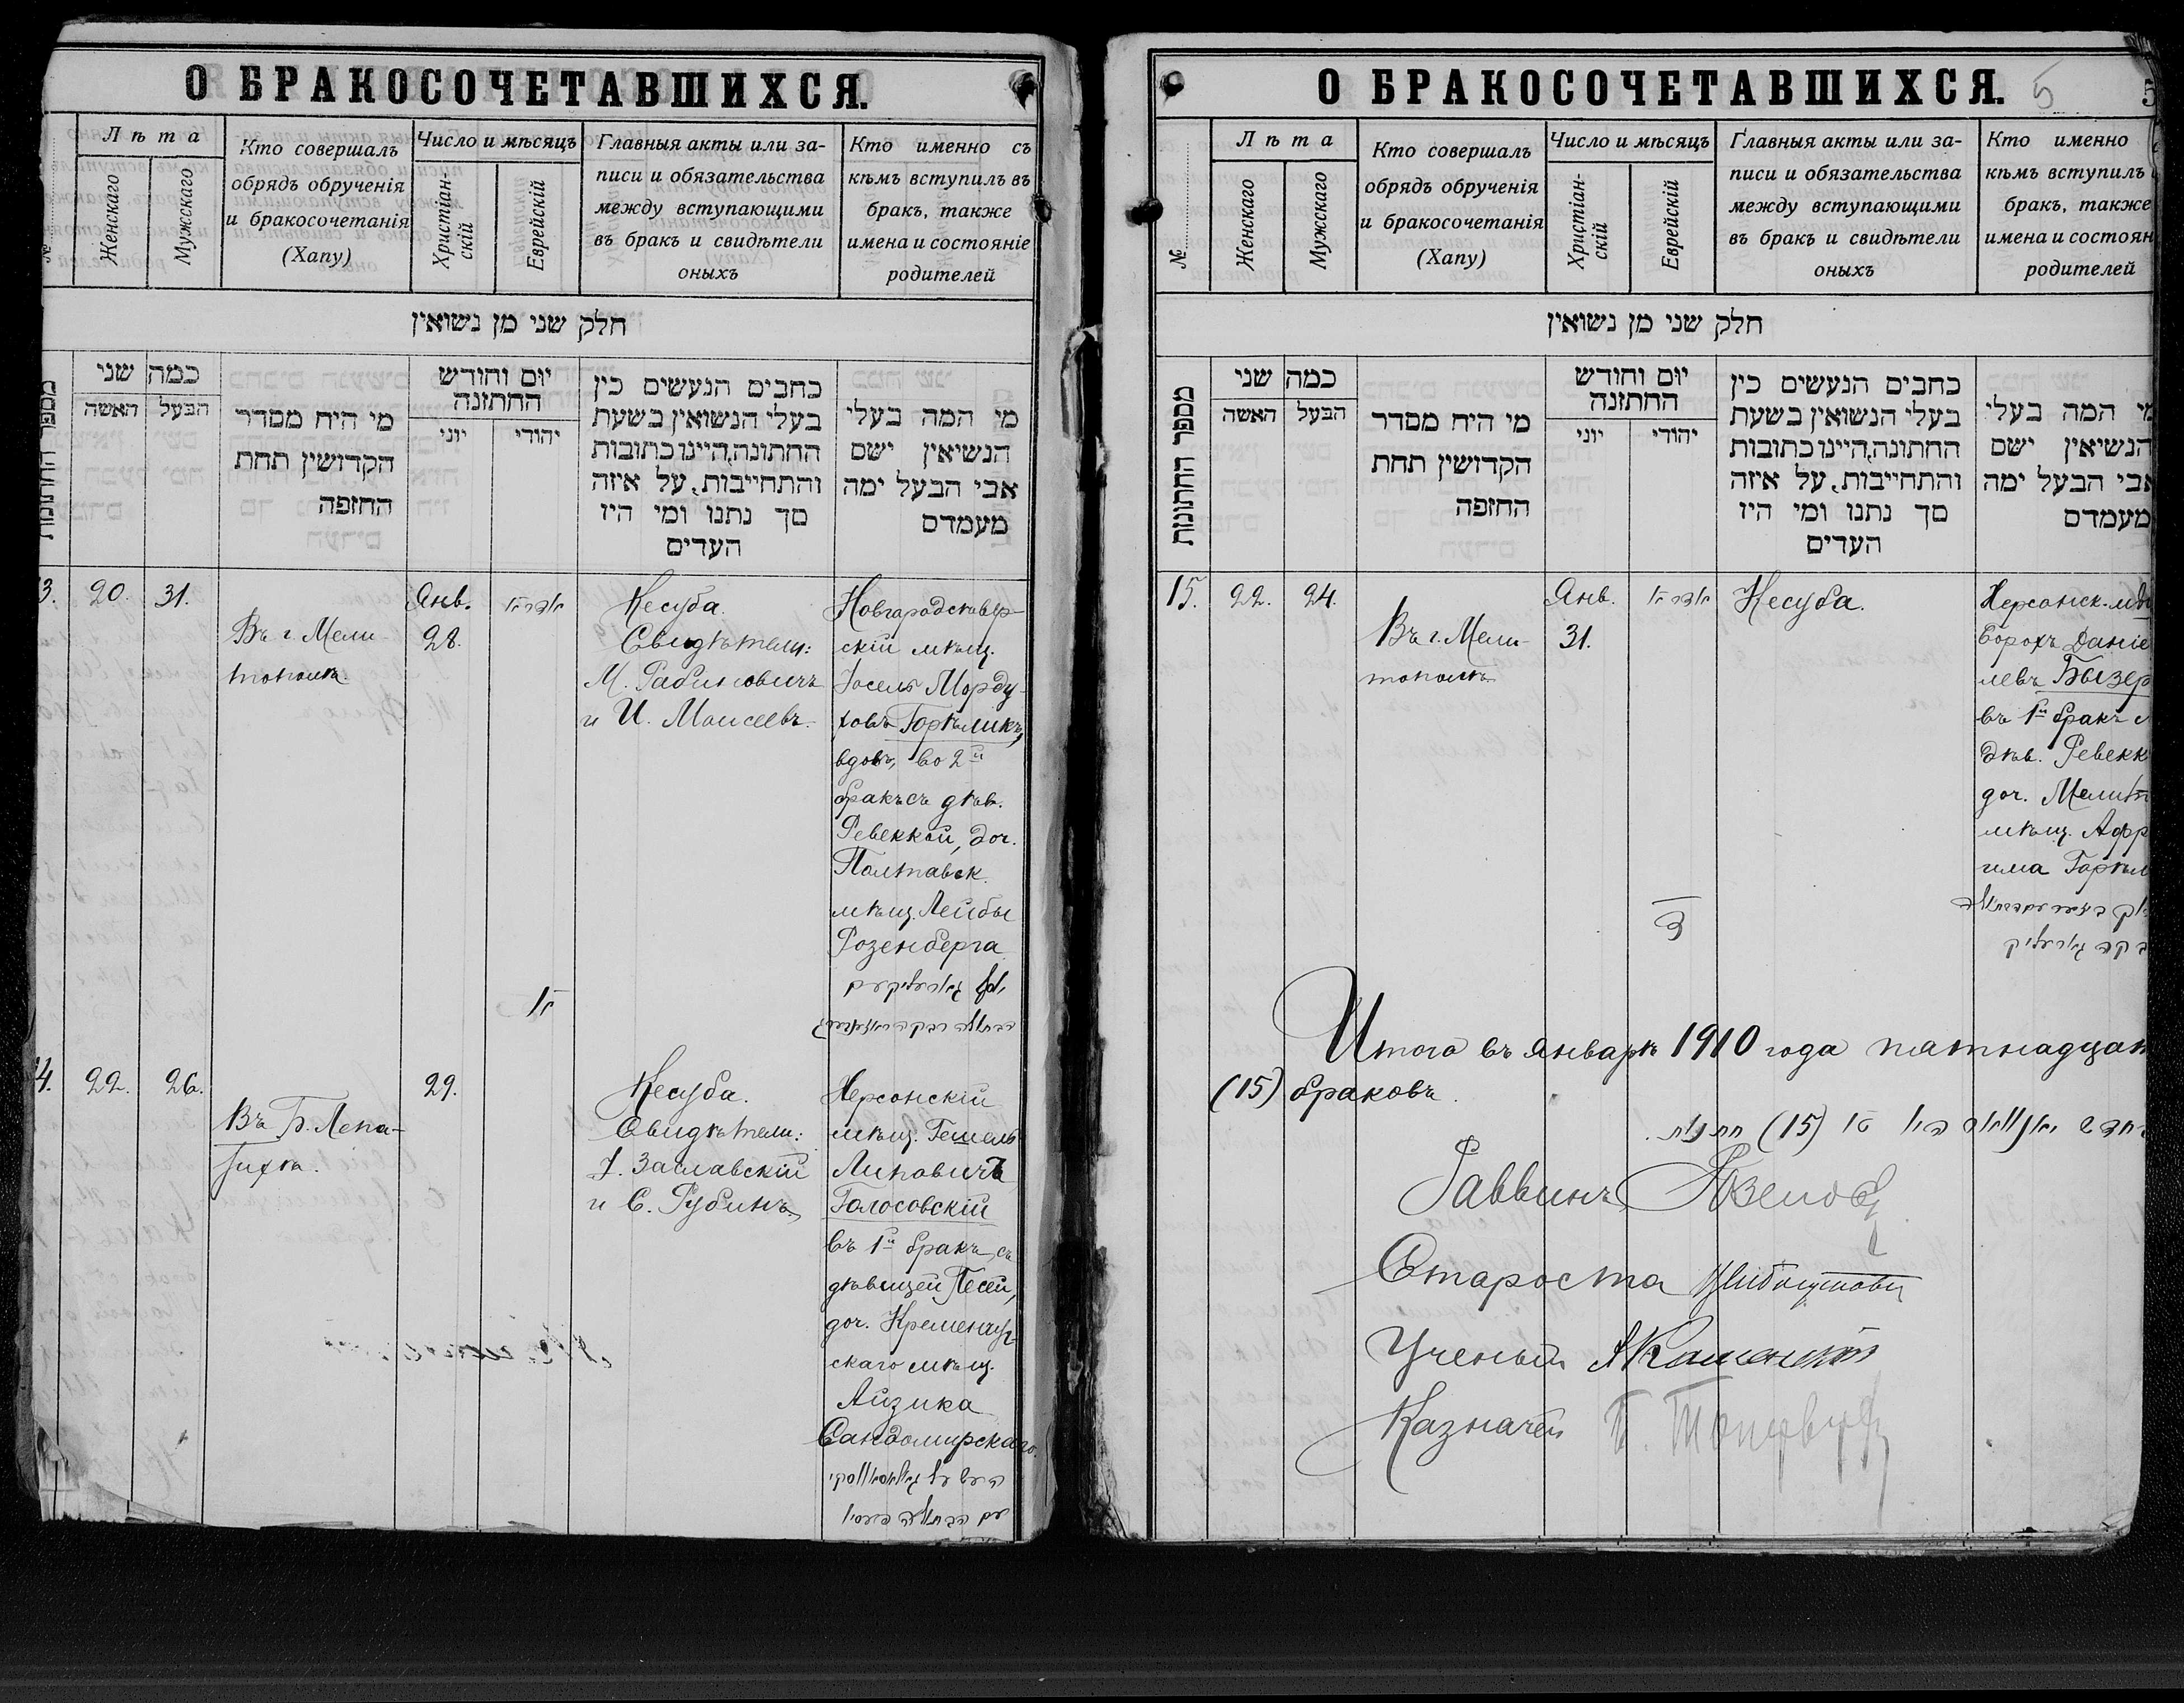 О БРАКОСОЧЕТАВШИХСЯ.
№
Лѣта
Женскаго
Мужскаго
Кто совершалъ
обрядъ обрученія
и бракосочетанія
(Хапу)
Число и мѣсяцъ
Христіан-
скій
Еврейскій
Главныя акты или за-
писи и обязательства
между вступающими
въ бракъ и свидѣтели
оныхъ
Кто именно съ
кѣмъ вступилъ въ
бракъ, также
имена и состояніе
родителей
חלק שני מן נשואין
מספר החתונות
כמה שני
האשה
הבעל
מי היח מסדר
הקדושין תחת
החזפה
יום וחודש
החתזנה
יוני
יהודי
כחבים הנעשים כין
בעלי הנשואין בשעת
החתונה,היינו כתובות
והתחייבות, על איזה
סך נתנו ומי היז
העדים
מי המה בעלי
הנשיאין ישם
אבי הבעל ימה
מעמדם
3.
20.
31.
Въ г. Мели-
тополѣ
Янв.
28.
Кесуба.
Свидѣтели:
М. Рабиновичъ
и И. Моисеевъ.
Новгородсѣвер-
скій мѣщ.
Іосель Морду-
ховъ Горѣликъ,
вдов., во 2й
бракъ съ дѣв.
Ревеккой, доч.
Полтавск.
мѣщ. Лейбы
Розенберга
4.
22.
26.
Въ Б. Лепа-
тихѣ.
29.
Кесуба.
Свидѣтели:
І. Заславскій
и С. Рубинъ
Херсонскій
мѣщ. Гешель
Липовичъ
Голосовскій
въ 1й бракъ, съ
дѣвицей Песей,
доч. Кременчуг-
скаго мѣщ.
Айзика
Сандомирскаго.
О БРАКОСОЧЕТАВШИХСЯ.
5
5
№
Лѣта
Женскаго
Мужскаго
Кто совершалъ
обрядъ обрученія
и бракосочетанія
(Хапу)
Число и мѣсяцъ
Христіан-
скій
Еврейскій
Главныя акты или за-
писи и обязательства
между вступающими
въ бракъ и свидѣтели
оныхъ
Кто именно
кѣмъ вступилъ
бракъ, также
имена и состоян
родителей
חלק שני מן נשואין
מספר החתונות
כמה שני
האשה
הבעל
מי היח מסדר
הקדושין תחת
החזפה
יום וחודש
החתזנה
יוני
יהודי
כחבים הנעשים כין
בעלי הנשואין בשעת
החתונה,היינו כתובות
והתחייבות, על איזה
סך נתנו ומי היז
העדים
מי המה בעלי
הנשיאין ישם
אבי הבעל ימה
מעמדם
15.
22.
24.
Въ г. Мели-
тополѣ
Янв.
31.
Кесуба.
Херсонск.
Борохъ Даніе
левъ Бызер
въ 1й бракъ
дѣв. Ревекк
доч. Мелит
мѣщ. Афр
има Горѣл
Итого въ январѣ 1910 года пятнадцат
(15) браковъ.
Раввинъ
Староста
Ученый
Казначей